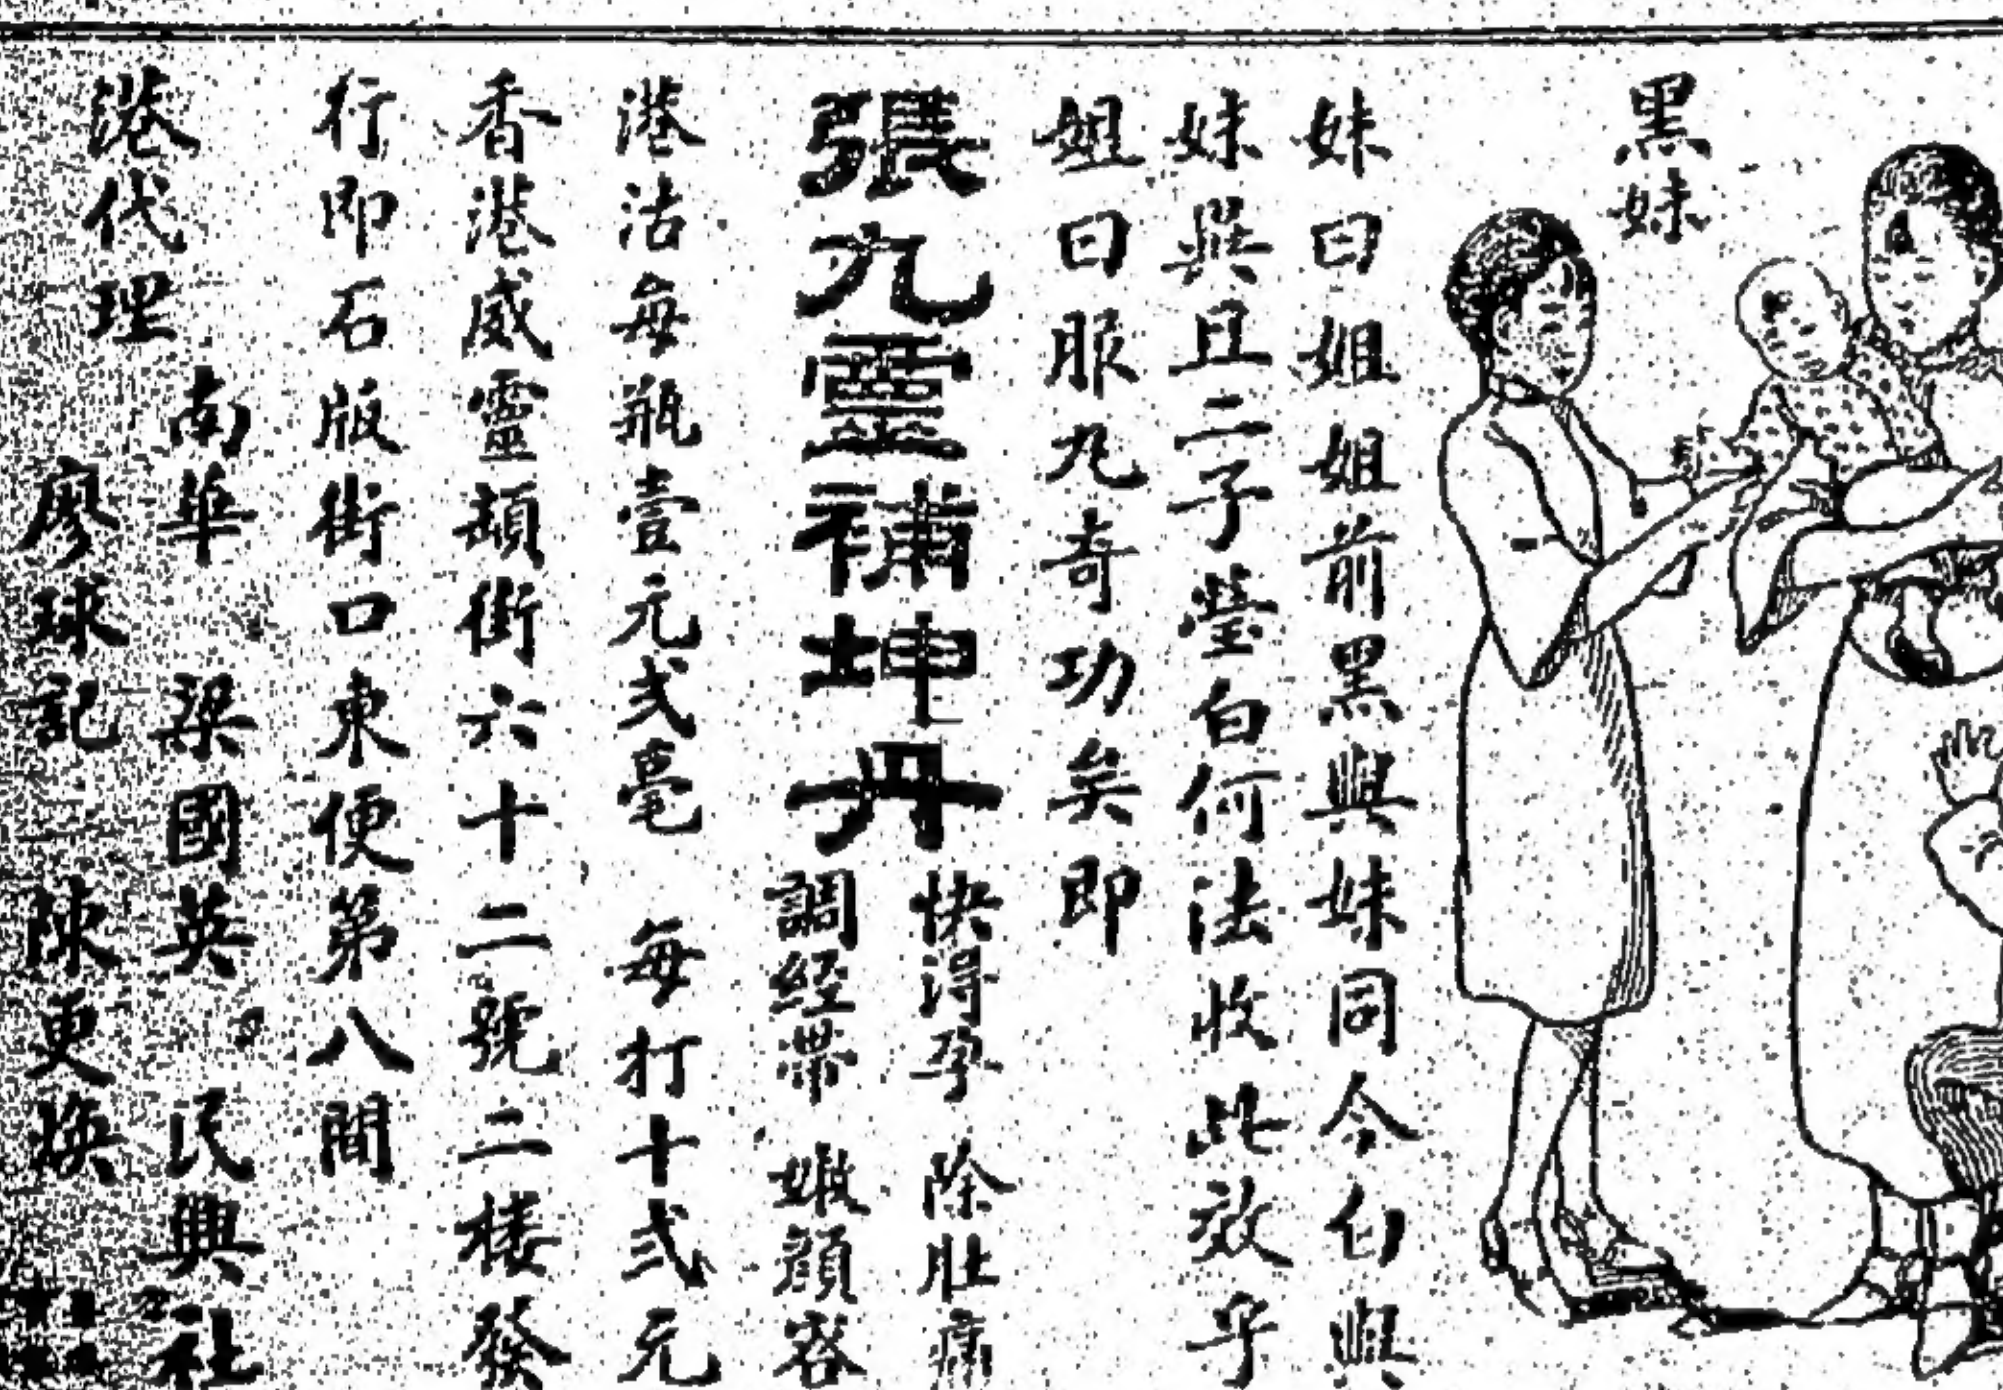 黑妹
妹曰姐姐前黑與妹同今白與
妹異且二子瑩白何法收此效乎
姐曰服九奇功矣即
張九靈補坤丹
快得孕 除肚痛
調經帶 嫩顏容
港沽每瓶壹元弍毫 每打十弍元
香港威靈頓街六十二號二楼發
行即石版街口東便第八間
港代理
南華 梁國英 民興社
廖球記 陳更煥